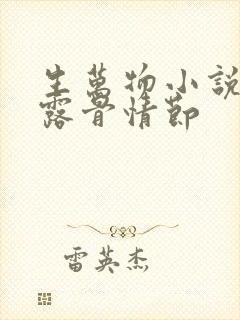 生萬物小說
露骨情節
雷英杰